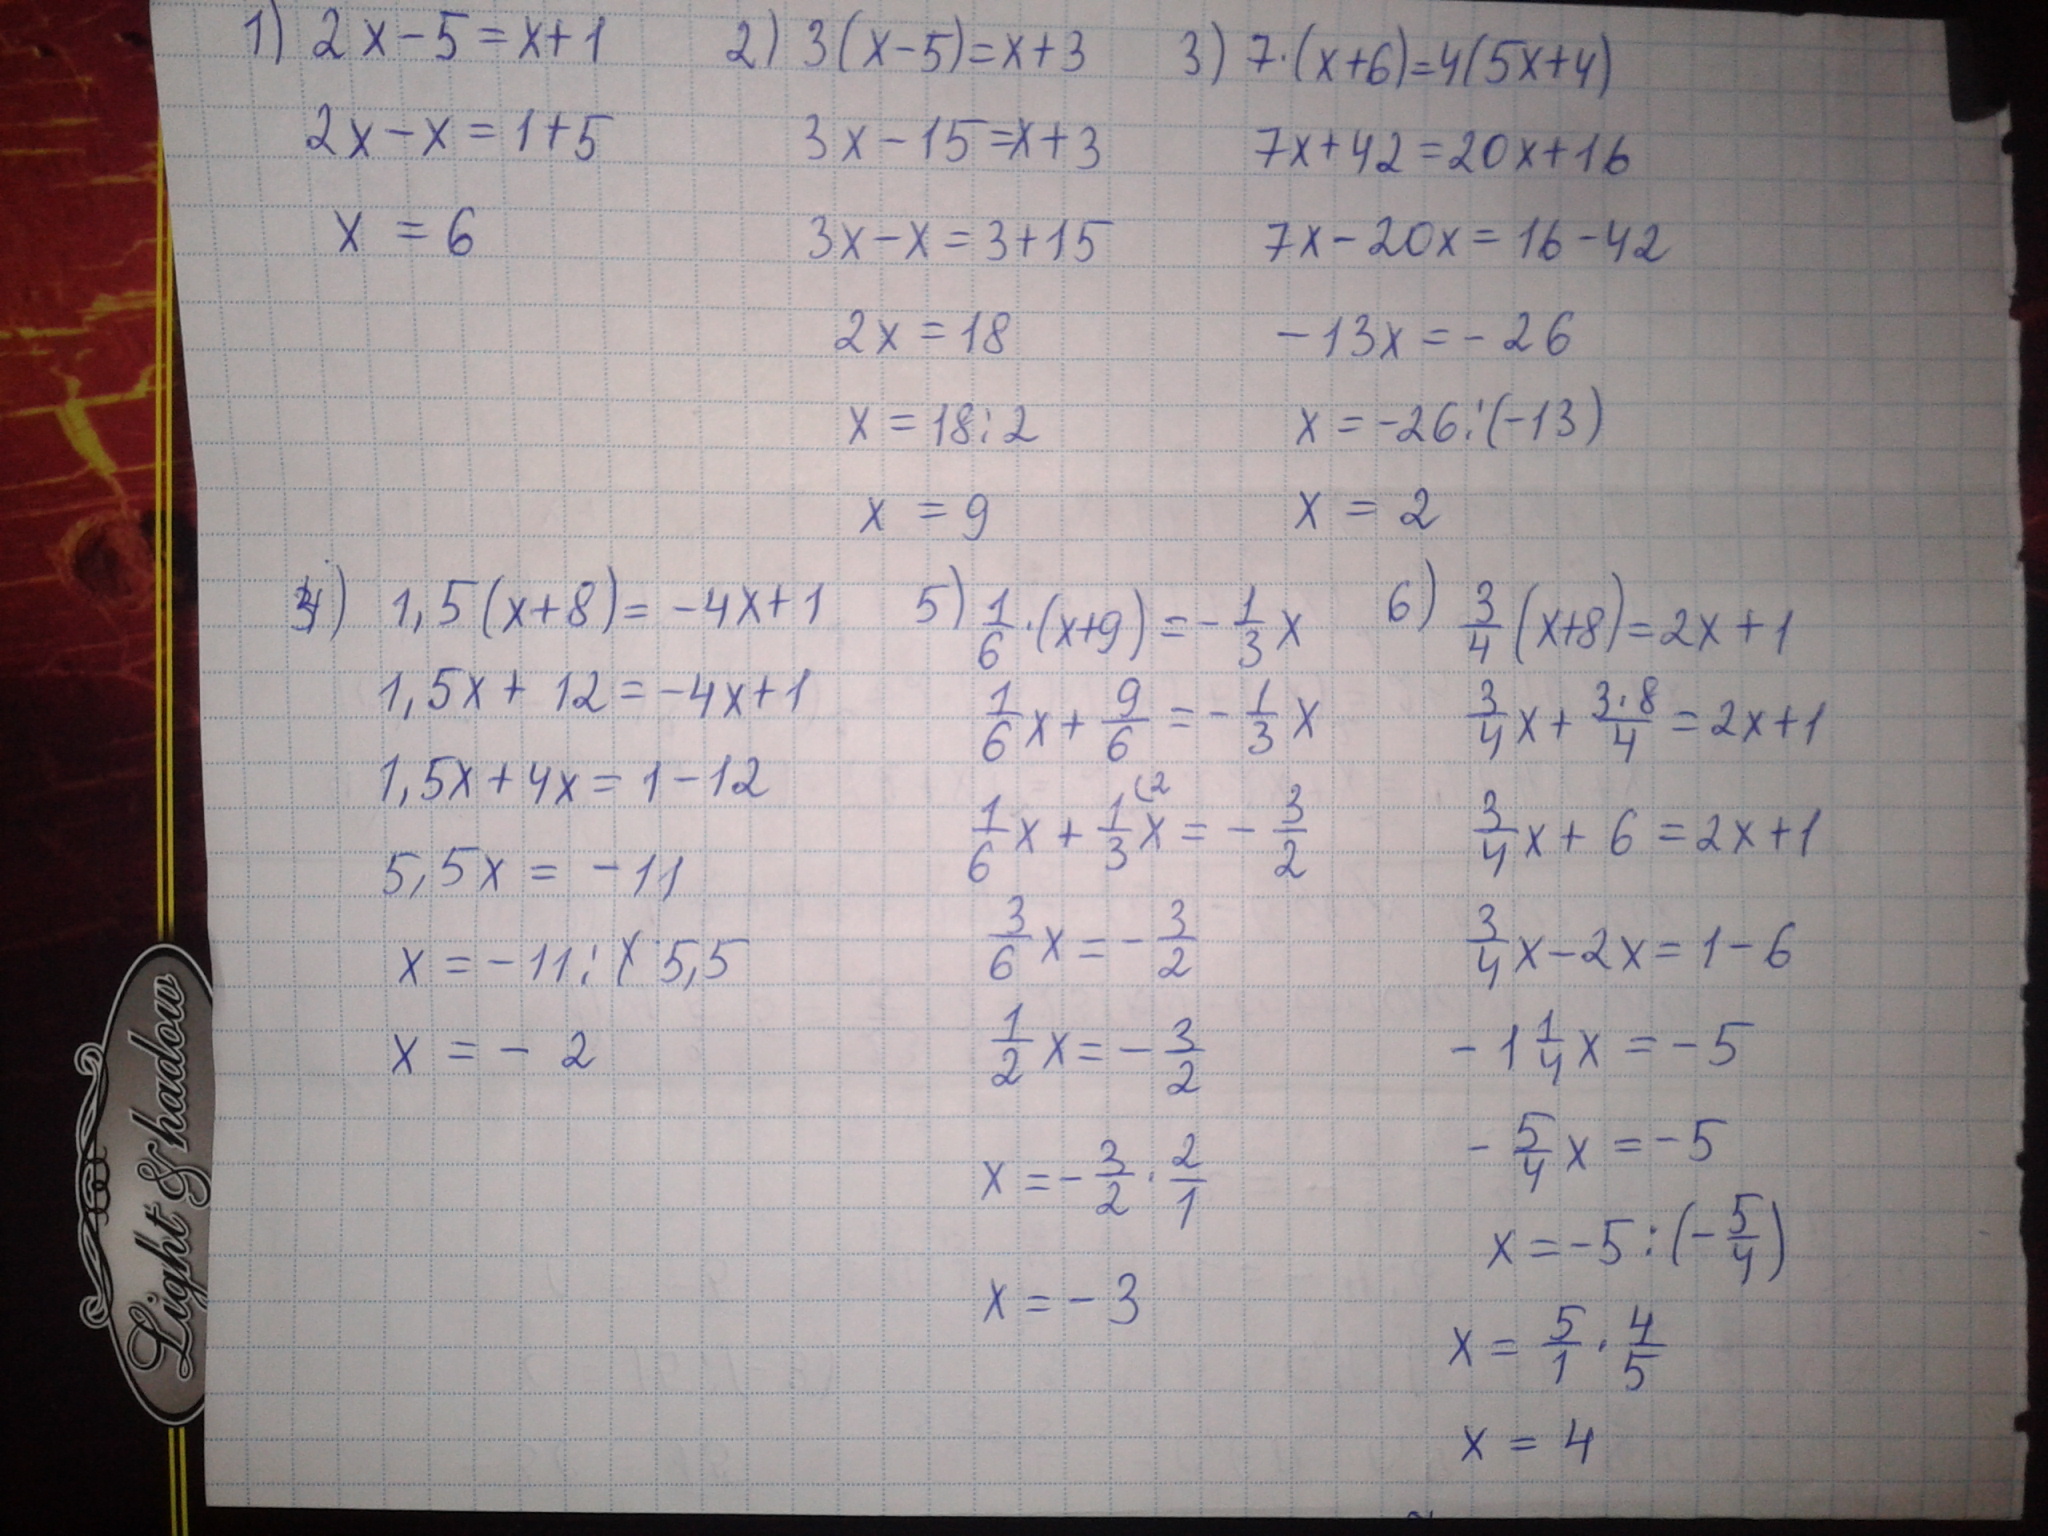 1) 2x-5=x+1
2x-x=1+5
x=6
2) 3(x-5)=x+3
3x-15=x+3
3x-x=3+15
2x=18
x=18:2
x=9
3) 7·(x+6)=4(5x+4)
7x+42=20x+16
7x-20x=16-42
-13x=-26
x=-26:(-13)
x=2
4) 1,5(x+8)=-4x+1
1,5x+12=-4x+1
1,5x+4x=1-12
5,5x=-11
x=-11:5,5
x=-2
5) 1/6·(x+9)=-1/3x
1/6x+9/6=-1/3x
1/6x+1/3x(2=-3/2
3/6x=-3/2
1/2x=-3/2
x=-3/2·2/1
x=-3
6) 3/4(x+8)=2x+1
3/4x+3·8/4=2x+1
3/4x+6=2x+1
3/4x-2x=1-6
-1 1/4x=-5
-5/4x=-5
x=-5:(-5/4)
x=5/1·4/5
x=4
Light & shadow